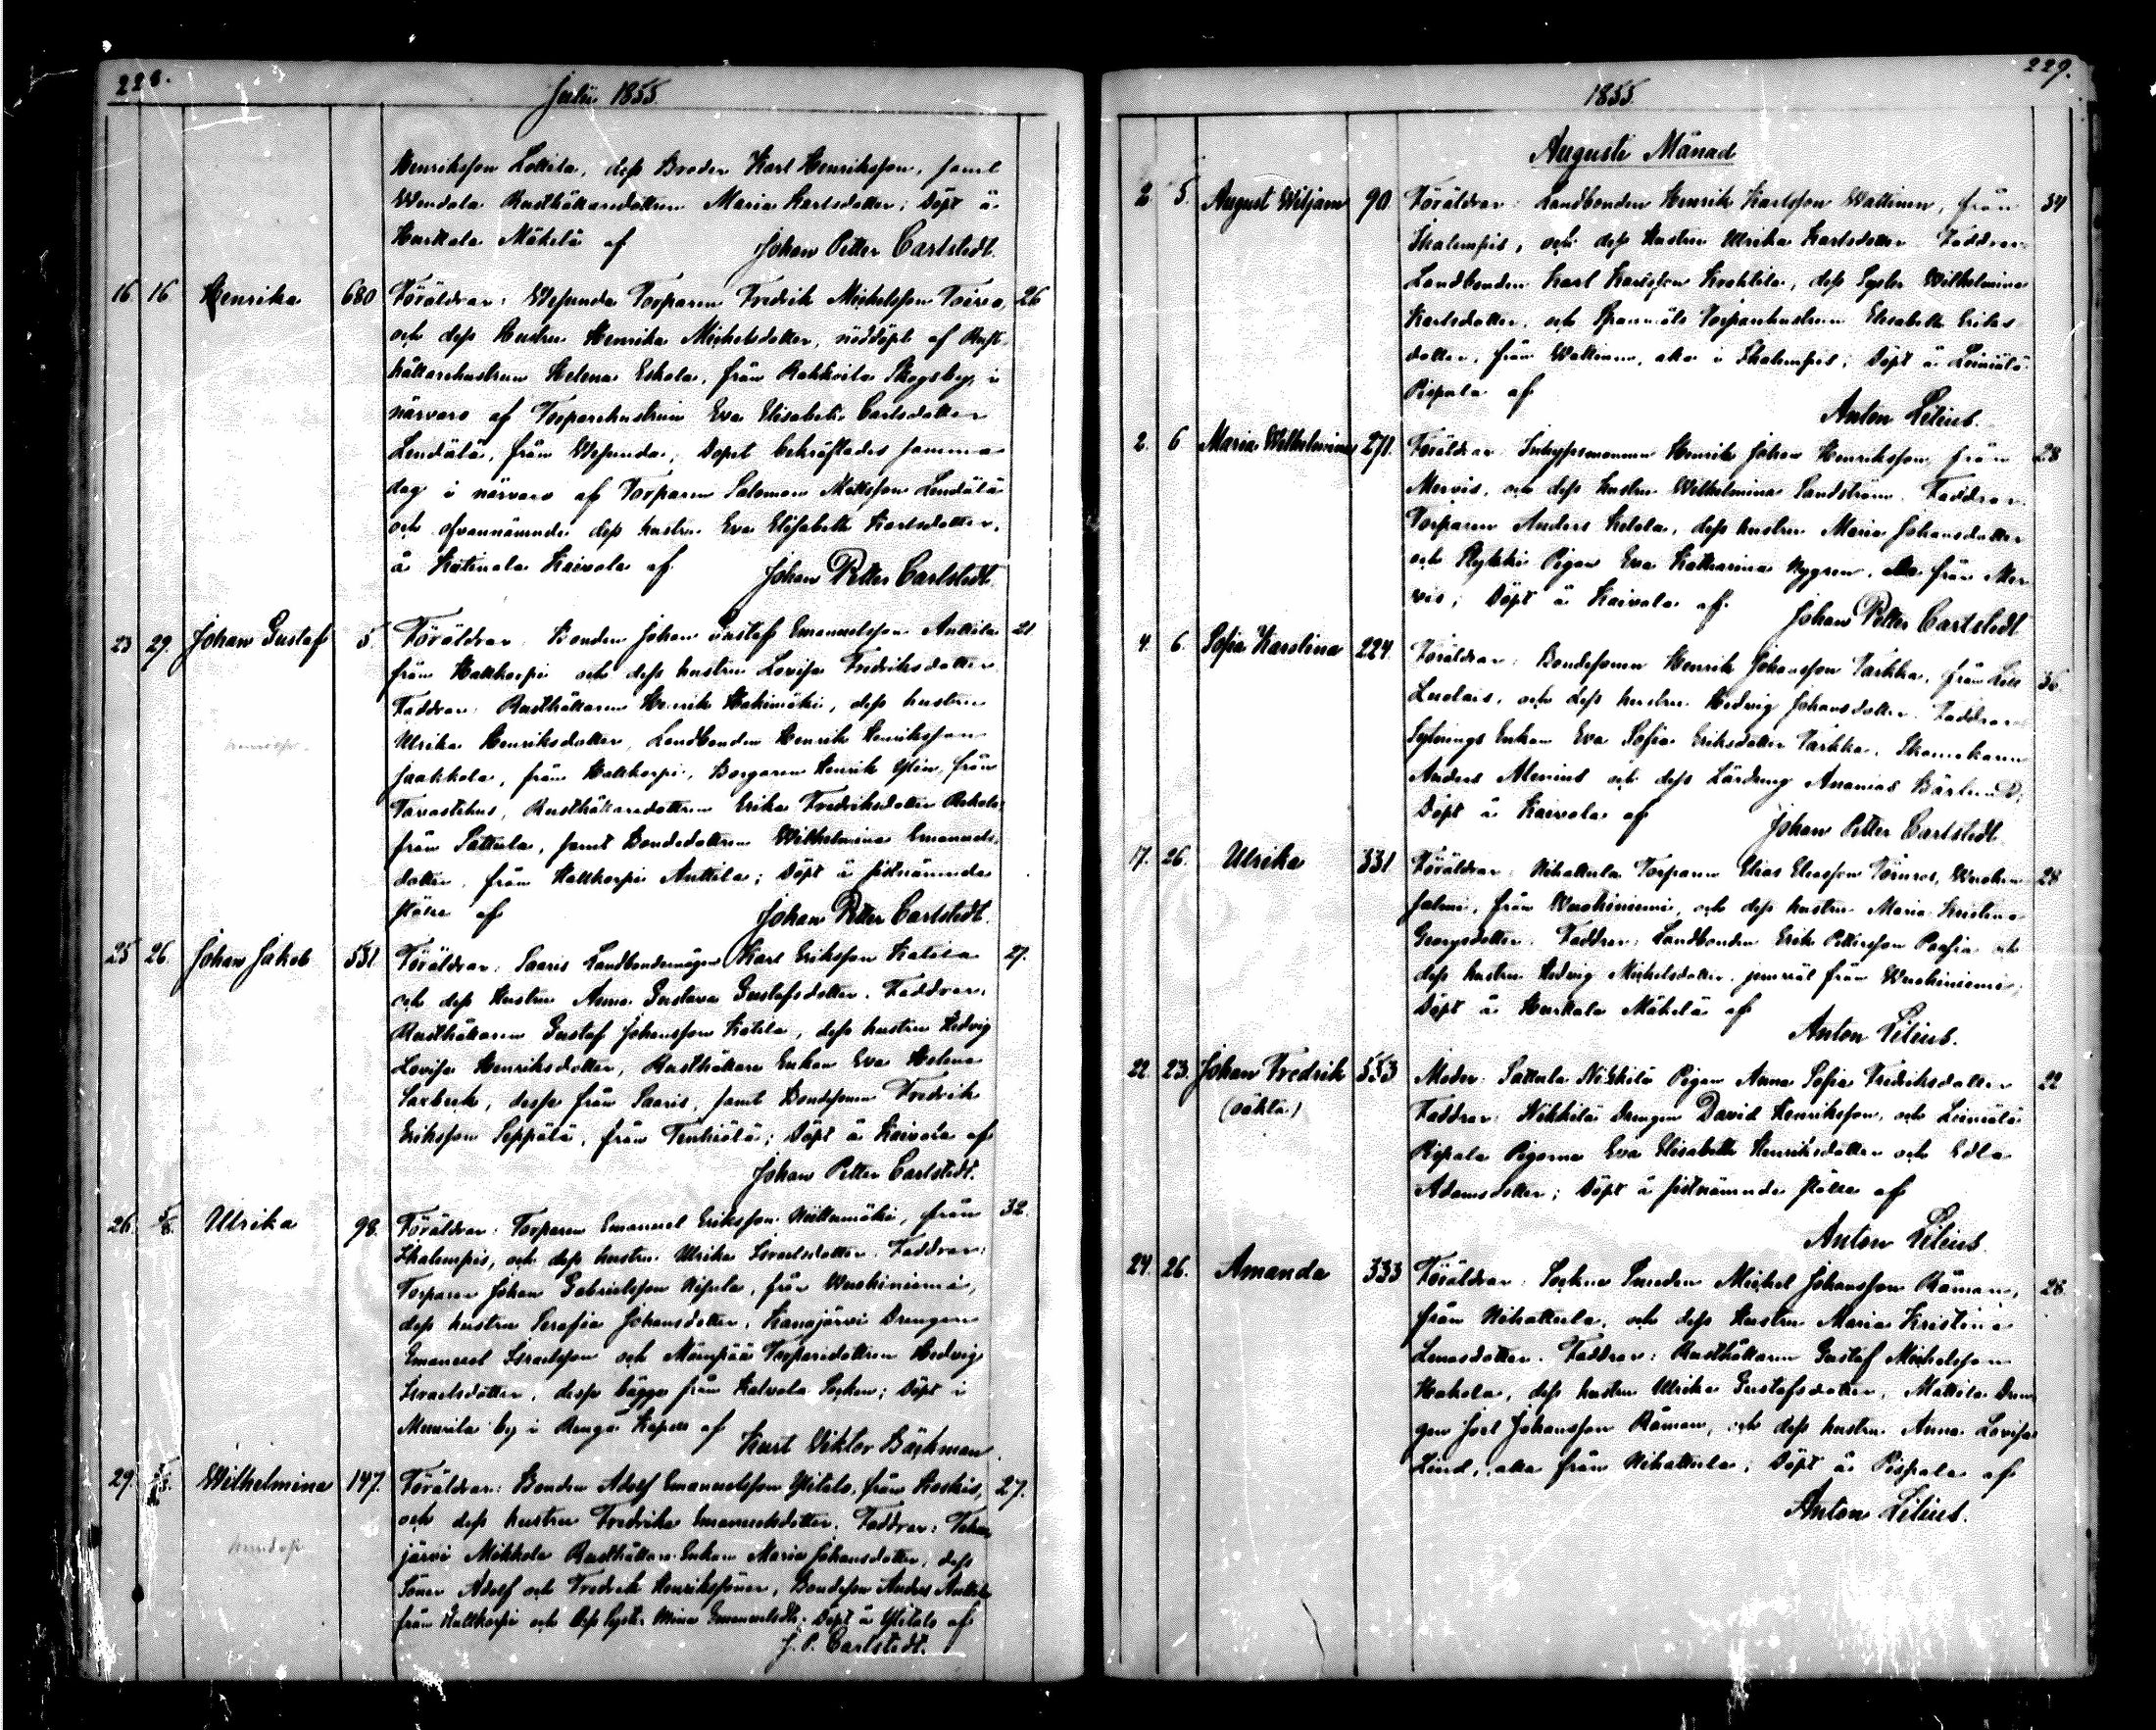 228.
Julii 1855.
Henriksson Lottila, dess Broder Karl Henriksson, samt
Rusthållaredottren Maria Karlsdotter; Döpt å
Hurkala Mäkelä af Johan Petter Carlstedt.
16 16 Henrika 680 Föräldrar: Wesunda Torparen Fredrik Michelsson Toivo, 26
och dess Hustru Henrika Michelsdotter, nöddöpt af Rust-
hållarehustrun Helena Eskola, från Rahkoila Skogsby, i
närvaro af Torparehustrun Eva Elisabeth Carlsdotter
Lendälä, från Wesunda; Dopet bekräftades samma
dag i närvaro af Torparen Salomon Mattsson Lendälä
och ofvannämnde dess hustru Eva Elisabeth Karlsdotter,
å Katinala Kaivola af Johan Petter Carlstedt.
23 29. Johan Gustaf 5 Föräldrar: Bonden Johan Gustaf Emanuelsson Anttila 21
från Hattkorpi och dess hustru Lovisa Fredriksdotter.
Faddrar: Rusthållaren Henrik Hakimäki, dess hustru
Ulrika Henriksdotter, Landbonden Henrik Henriksson
Jaakkola, från Hattkorpi, Borgaren Henrik från
Tavastehus, Rusthållaredottren Erika Fredriksdotter
från Sattula, samt Bondedottren Wilhelmina Emanuels-
dotter, från Hattkorpi Anttila; Döpt å sistnämnde
ställe af Johan Petter Carlstedt.
25 26. Johan Jakob 531 Föräldrar: Saaris Landbondemågen Karl Eriksson Katila 27.
och dess Hustru Anna Gustava Gustafsdotter. Faddrar:
Rusthållaren Gustaf Johansson Katila, dess hustru Hedvig
Lovisa Henriksdotter, Rusthållare Enkan Eva Helena
Saxberk, desse från Saaris, samt Bondesonen Fredrik
Eriksson Seppälä, från Tenhiälä; Döpt å Kaivola af
Johan Petter Carlstedt.
26. 5/8. Ulrika 98. Föräldrar: Torparen Emanuel Eriksson Niittumäki, från 32.
Ihalempis, och dess hustru Ulrika Israelsdotter. Faddrar:
Torparen Johan Gabrielsson från Wuohiniemi,
dess hustru Serafia Johansdotter, Kanajärvi Drengen
Emanuel Israelsson och Torparedottren Hedvig
Israelsdotter, desse bägge från Kalvola Socken; Döpt i
by i Rengo Kapell af Kurt Viktor Bäckman.
29. Wilhelmina 147. Föräldrar: Bonden Adolf Emanuelsson Ylitalo, från Koskis, 27.
och dess hustru Fredrika Emanuelsdotter. Faddrar:
järvi Mikkola Rusthållare Enkan Maria Johansdotter, dess
Söner Adolf och Fredrik Henrikssöner, Bondeson Anders Anttila
från Hattkorpi och dess Syster Mina Emanuelsdtr; Döpt å Ylitalo af
J. P. Carlstedt.
229.
1855.
Augusti Månad
2. 5. August Wiljam 90 Föräldrar: Landbonden Henrik Karlsson Wallinen, från 34
Ihalempis, och dess Hustru Ulrika Karlsdotter. Faddrar:
Landbonden Karl Karlsson Krohtila, dess Syster Wilhelmina
Karlsdotter, och Torparehustrun Elisabeth Eriks-
dotter, från Wallinen, alla i Ihalempis; Döpt å Leiniälä
Pispala af
Anton Lilius.
2. 6 Maria Wilhelmina 271. Föräldrar: Inhysesmannen Henrik Johan Henriksson från 28
Mervis, och dess hustru Wilhelmina Sandström. Faddrar:
Torparen Anders Ketola, dess hustru Maria Johansdotter
och Pigan Eva Katharina Nygren, alla från Mer-
vis; Döpt å Kaivola af Johan Petter Carlstedt.
4. 6. Sofia Karolina 224. Föräldrar: Bondesonen Henrik Johansson Tarkka, från Lill 36.
Luolais, och dess hustru Hedvig Johansdotter. Faddrar:
Sytnings Enkan Eva Sofia Eriksdotter Tarkka, Skomakaren
Anders Alenius och dess Lärdreng Ananias Bärlund;
Döpt å Kaivola af Johan Petter Carlstedt
17. 26. Ulrika 331 Föräldrar: Nihattula Torparen Elias Eliasson Törnroos, 28
salmi, från Wuohiniemi, och dess hustru Maria Kristina
Georgsdotter. Faddrar: Landbonden Erik Pettersson Paasia och
dess hustru Hedvig Michelsdotter, jemväl från Wuohiniemi;
Döpt å Hurkala Mäkelä af
Anton Lilius.
22. 23. Johan Fredrik 553 Moder: Sattula Nikkilä Pigan Anna Sofia Fredriksdotter 22
(oäkta) Faddrar: Nikkilä Drengen David Henriksson, och Leiniälä
Pispala Pigorna Eva Elisabeth Henriksdotter och Edla
Adamsdotter; Döpt å sistnämnde ställe af
Anton Lilius.
24. 26. Amanda 333 Föräldrar: Sockne Smeden Michel Johansson Råman, 28
från Nihattula, och dess Hustru Maria Kristina
Lenasdotter. Faddrar: Rusthållaren Gustaf Michelsson
Hakola, dess hustru Ulrika Gustafsdotter, Mattila Dren-
gen Joel Johansson Råman, och dess hustru Anna Lovisa
Lind, alla från Nihattula; Döpt å Pispala af
Anton Lilius.